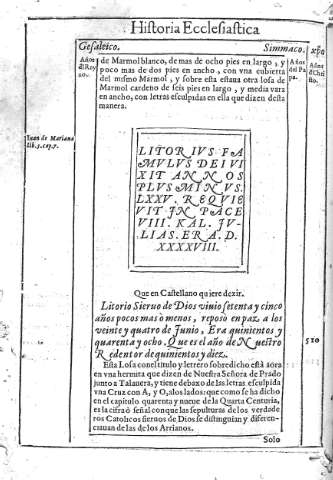 Historia Ecclesiastica
Gesaleico.
Simmaco.
xpõ
Años
del Rey
no.
de Marmol blanco, de mas de ocho pies en largo, y
poco mas de dos pies en ancho, con vna cubierta
del mismo Marmol, y sobre esta estaua otra losa de
Marmol cardeno de seis pies en largo, y media vara
en ancho, con letras esculpidas en ella que dizen desta
manera.
Años
del Pa
pa.
Años
d Chri
sto.
Juan de Mariana
lib. 5. cap. 7.
LITORIVS FA
MVLVS DEI VI
XIT ANNOS
PLVS MINVS.
LXXV. REQVIE
VIT IN PACE
VIII. KAL. JV-
LIAS. ERA. D.
XXXXVIII.
Que en Castellano quiere dezir.
Litorio Sieruo de Dios viuio setenta y cinco
años pocos mas o menos, reposò en paz, a los
veinte y quatro de Iunio, Era quinientos y
quarenta y ocho. Que es el año de Nuestro
Redentor de quinientos y diez.
510
Esta Losa con el titulo y letrero sobredicho està aora
en vna hermita que dizen de Nuestra Señora de Prado
junto a Talauera, y tiene debaxo de las letras esculpida
vna Cruz con A, y O, a los lados: que como se ha dicho
en el capitulo quarenta y nueue de la Quarta Centuria,
es la cifra ò señal con que las sepulturas de los verdade
ros Catolicos sieruos de Dios se distinguian y diferen-
ciauan de las de los Arrianos.
Solo